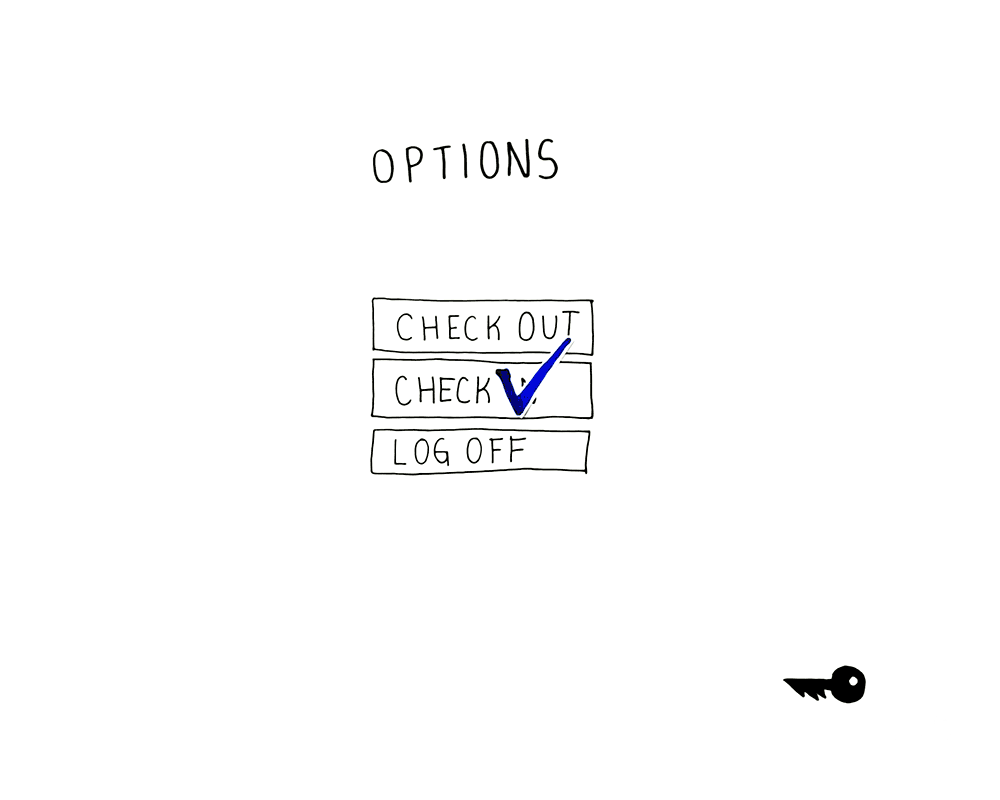 OPTIONS
CHECK OUT
CHECK
LOG OFF